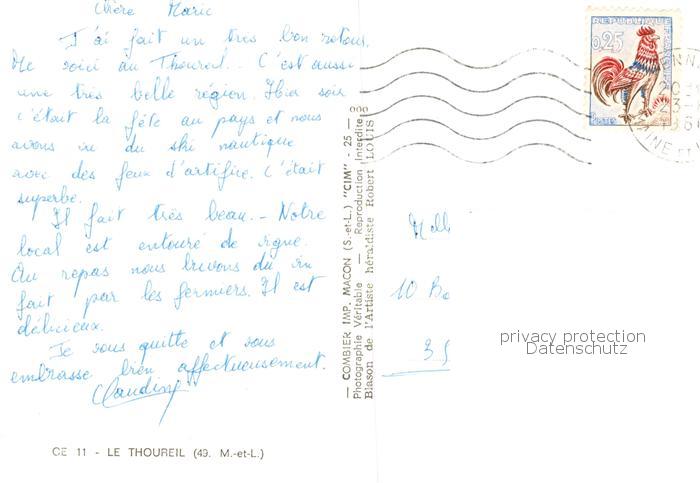 Chère Marie
J'ai fait un très bon retour.
Me voici au Thoureil. C'est aussi
une très belle région. Hier soir
c'était la fête au pays et nous
avons vu du ski nautique
avec des feux d'artifice. C'était
superbe.
Il fait très beau. - Notre
local est entouré de vigne.
Au repas nous buvons du vin
fait par les fermiers. Il est
délicieux.
Je vous quitte et vous
embrasse bien affectueusement.
Claudine
CE 11 - LE THOUREIL (49. M.-et-L.)
— COMBIER IMP. MACON (S.-et-L.) "CIM" - 25 —
Photographie Véritable — Reproduction Interdite
Blason de l'Artiste héraldiste Robert LOUIS
REPUBLIQUE
FRANÇAISE
0,25
POSTES
MAINE ET
Melle
10 Bo
privacy protection
Datenschutz